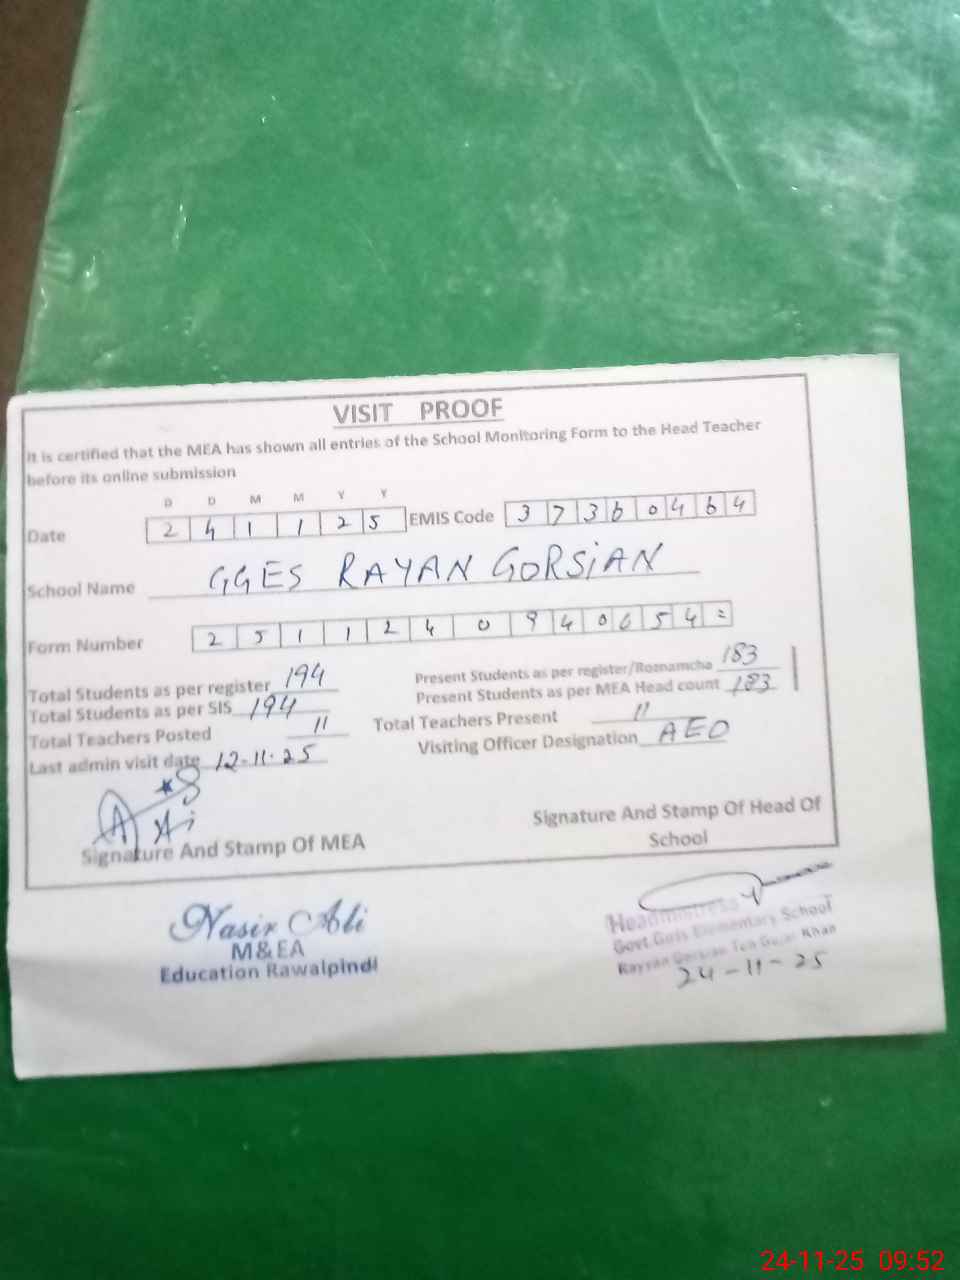 VISIT PROOF
It is certified that the MEA has shown all entries of the School Monitoring Form to the Head Teacher
before its online submission
D D M M Y Y
Date 2 4 1 1 2 5 EMIS Code 3 7 3 6 0 4 6 4
School Name GGES RAYAN GORSiAN
Form Number 2 5 1 1 2 4 0 9 4 0 6 5 4 =
Total Students as per register 194 Present Students as per register/Roznamcha 183
Total Students as per SIS 194 Present Students as per MEA Head count 183
Total Teachers Posted 11 Total Teachers Present 11
Last admin visit date 12-11-25 Visiting Officer Designation AEO
Signature And Stamp Of MEA
Signature And Stamp Of Head Of
School
Nasir Ali
M&EA
Education Rawalpindi
Headmistress
Govt.Girls Elementary School
Rayyan Gorsian Teh Gujar Khan
24-11-25
24-11-25 09:52